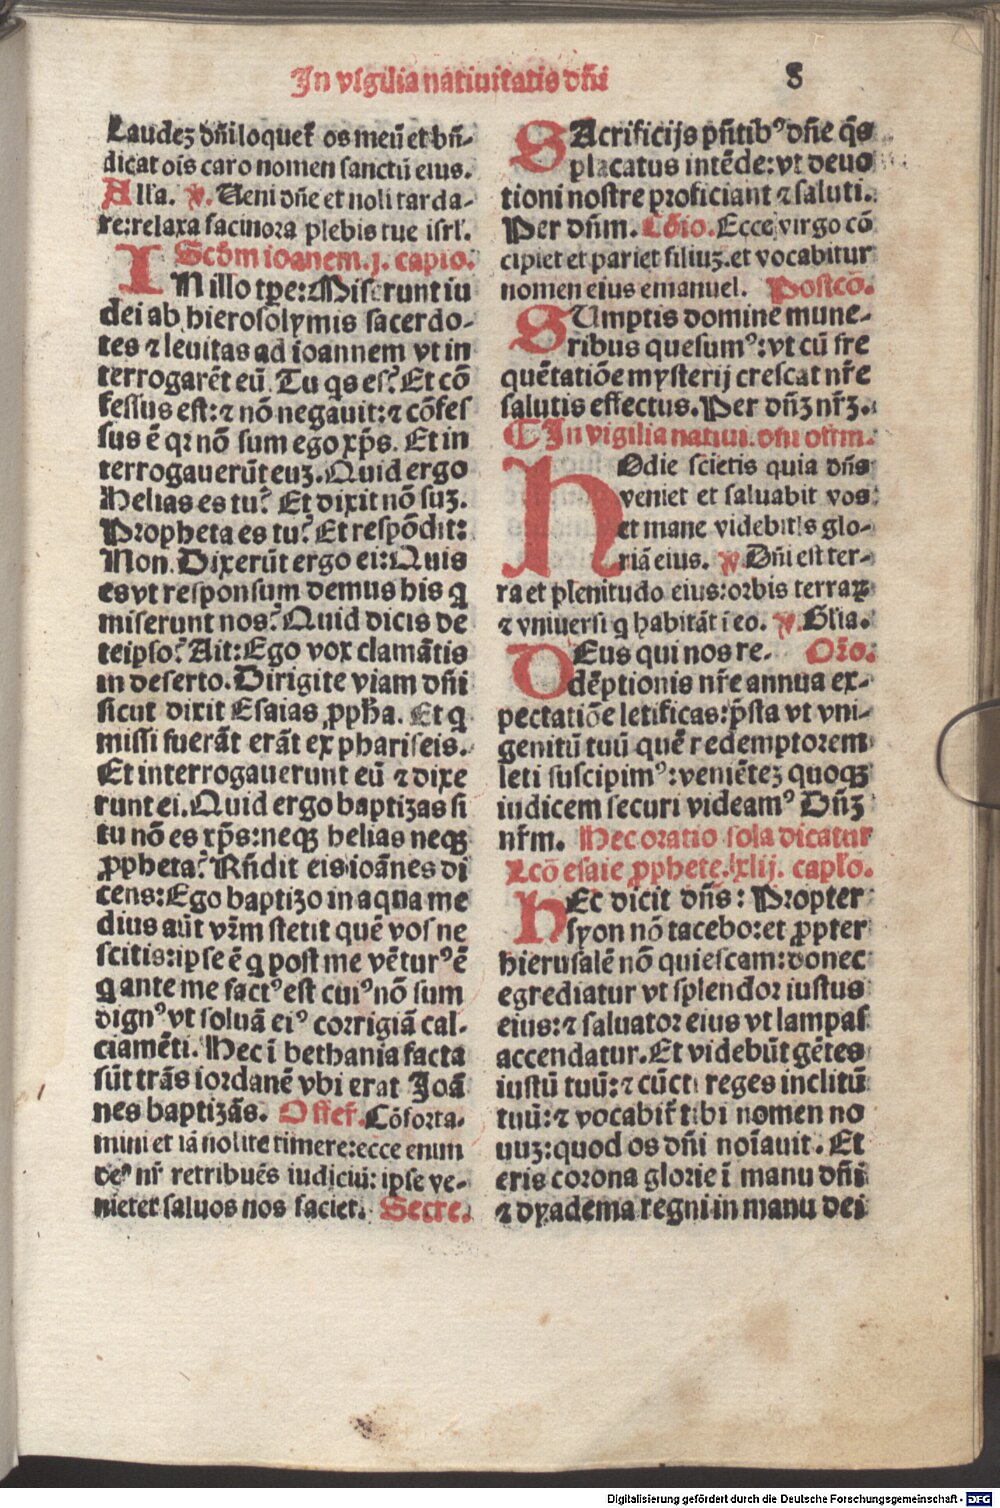 In vigilia natiuitatis dñi
8
Laudeʒ dñi loquet̃ os meũ et bñ-
dicat oĩs caro nomen sanctũ eius.
Alla. ℣. Ueni dñe et noli tarda-
re: relaxa facinora plebis tue isrl̃.
Scd̃m ioanem. j. capĩo.
IN illo tp̃e: Miserunt iu
dei ab hierosolymis sacerdo-
tes ⁊ leuitas ad ioannem vt in
terrogarẽt eũ. Tu q̃s es? Et cõ
fessus est: ⁊ nõ negauit: ⁊ cõfes
sus ẽ qꝛ nõ sum ego xp̃s. Et in
terrogauerũt euʒ. Quid ergo
Helias es tu? Et dixit nõ suʒ.
Propheta es tu? Et respõdit:
Non. Dixerũt ergo ei: Quis
es vt responsum demus his q̃
miserunt nos? Quid dicis de
teipso? Ait: Ego vox clamãtis
in deserto. Dirigite viam dñi
sicut dixit Esaias ꝓph̃a. Et q̃
missi fuerãt erãt ex phariseis.
Et interrogauerunt eũ ⁊ dixe
runt ei. Quid ergo baptizas si
tu nõ es xp̃s: neqꝫ helias neqꝫ
ꝓpheta? Rñdit eis ioãnes di
cens: Ego baptizo in aqua me
dius aũt vr̃m stetit quẽ vos ne
scitis: ipse ẽ q̃ post me vẽturꝰ ẽ
q̃ ante me factꝰ est cuiꝰ nõ sum
dignꝰ vt soluã eiꝰ corrigiã cal-
ciamẽti. Hec ĩ bethania facta
sũt trãs iordanẽ vbi erat Joã
nes baptizãs. Offer̃. Cõforta-
mini et iã nolite timere: ecce enim
deꝰ nr̃ retribuẽs iudiciũ: ipse ve-
niet et saluos nos faciet. Secre.
SAcrificijs pñtibꝰ dñe q̃s
placatus intẽde: vt deuo
tioni nostre proficiant ⁊ saluti.
Per dñm. Cõio. Ecce virgo cõ
cipiet et pariet filiuʒ. et vocabitur
nomen eius emanuel. Postcõ.
SUmptis domine mune-
ribus quesumꝰ: vt cũ fre
quẽtatiõe mysterij crescat nr̃e
salutis effectus. Per dñʒ nr̃ʒ.
¶ In vigilia natiui. dñi offm̃.
HOdie scietis quia dñs
veniet et saluabit vos:
et mane videbitis glo-
riã eius. ℣ Dñi est ter-
ra et plenitudo eius: orbis terraꝝ
⁊ vniuersi q̃ habitãt ĩ eo. ℣. Gl̃ia.
DEus qui nos re- Or̃o.
dẽptionis nr̃e annua ex-
pectatiõe letificas: p̃sta vt vni-
genitũ tuũ quẽ redemptorem
leti suscipimꝰ: veniẽteʒ quoqꝫ
iudicem securi videamꝰ Dñʒ
nr̃m. Hec oratio sola dicatur
Lcõ esaie ꝓphete. lxij. capl̃o.
HEc dicit dñs: Propter
syon nõ tacebo: et ꝓpter
hierusalẽ nõ quiescam: donec
egrediatur vt splendor iustus
eius: ⁊ saluator eius vt lampas
accendatur. Et videbũt gẽtes
iustũ tuũ: ⁊ cũcti reges inclitũ
tuũ: ⁊ vocabit̃ tibi nomen no
uuʒ: quod os dñi noĩauit. Et
eris corona glorie ĩ manu dñi
⁊ dyadema regni in manu dei
Digitalisierung gefördert durch die Deutsche Forschungsgemeinschaft - DFG